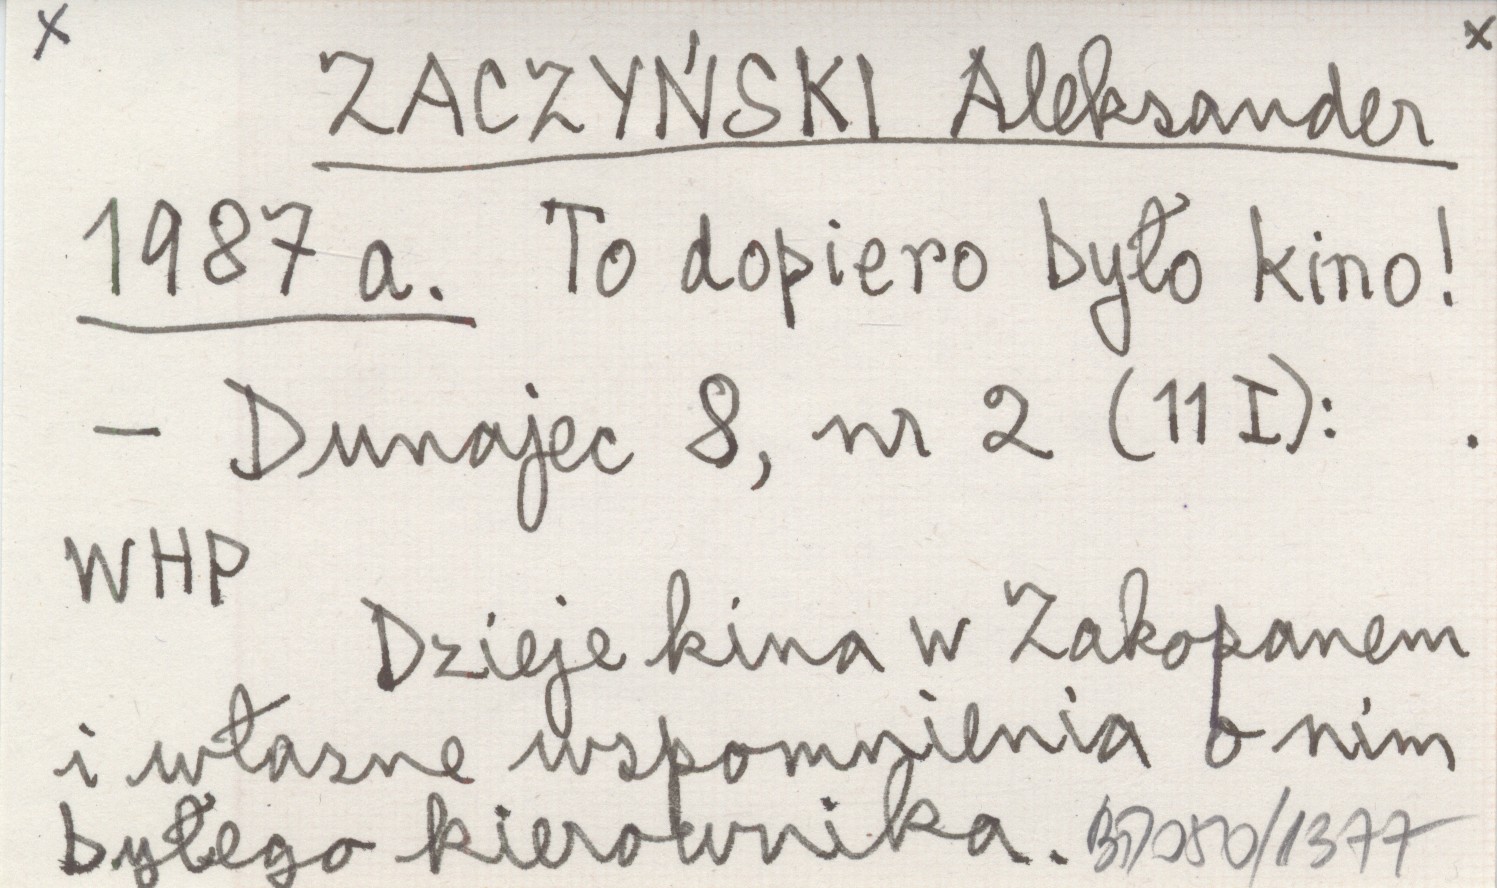 x x
ZACZYŃSKI Aleksander
1987 a. To dopiero było kino!
— Dunajec 8, nr 2 (11 I): .
WHP
Dzieje kina w Zakopanem
i własne wspomnienia o nim
byłego kierownika. /1377